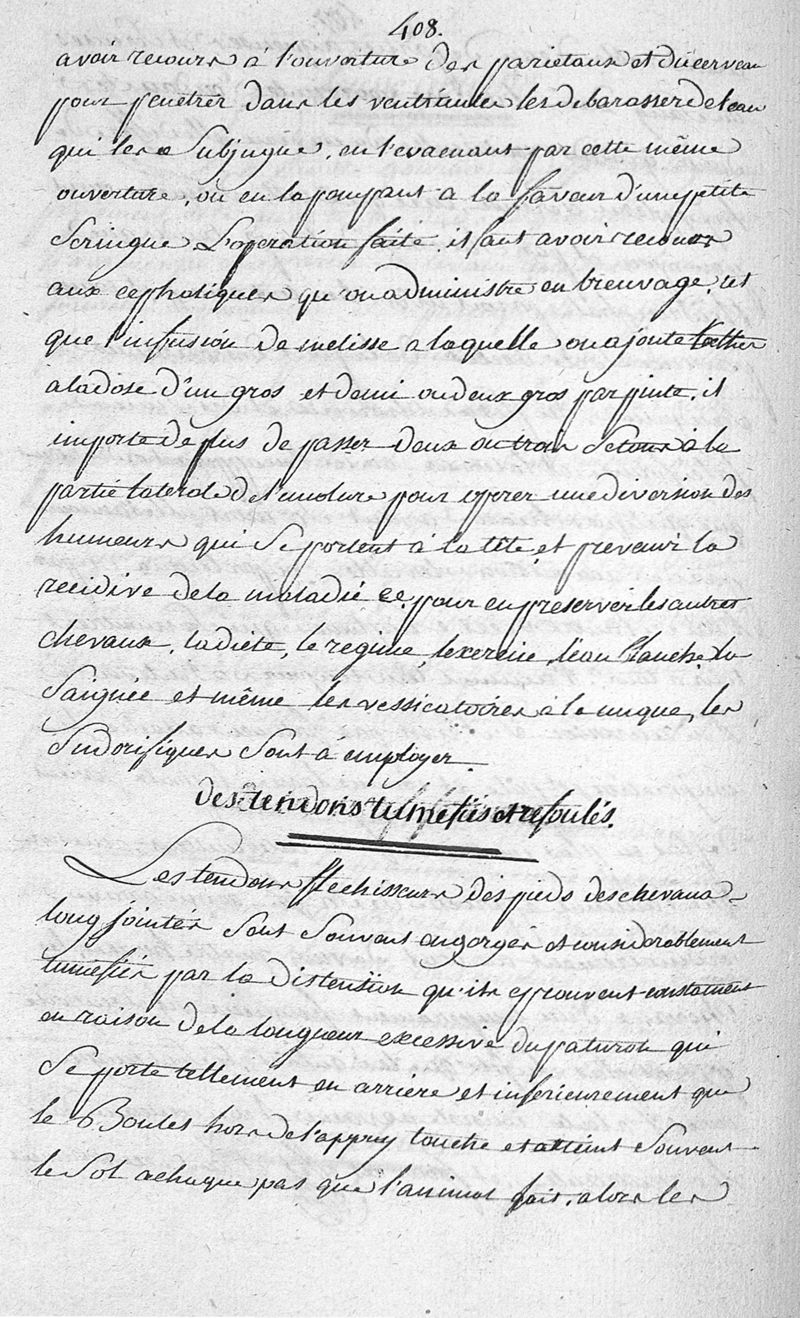 408.
avoir recours à l'ouverture des parietaux et du cerveau
pour penétrer dans les ventricules les debarasser de l'eau
qui les Subjugue, en l'evacuant par cette même
ouverture, ou en la pompant a la faveur d'une petite
Seringue L'operation faite, il faut avoir recours
aux cephaliques qu'on administre en breuvage, tel
que l'infusion de melisse a laquelle on ajoute l'ether
a la dose d'un gros et demi ou deux gros par pinte, il
importe de plus de passer deux ou trois Setons à la
partie laterale de l'encolure pour opérer une diversion des
humeurs qui Se portent à la tête, et prevenir la
recidive de la maladie &c. pour en préserver les autres
chevaux, la diete, le regime, l'exercice, l'eau blanche, la
Saignée et même les vessicatoires à la nuque, les
Sudorifiques Sont à employer.
des tendons tuméfiés et refoulés.
Les tendons flechisseurs des pieds des chevaux
long jointés Sont Souvent engorgés et considerablement
tuméfiés par la distention qu'ils eprouvent constament
en raison de la longueur excessive du paturon qui
Se porte tellement en arrière et inferieurement que
le Boulet hors de l'appuy touche et atteint Souvent
le Sol a chaque pas que l'animal fait, alors les